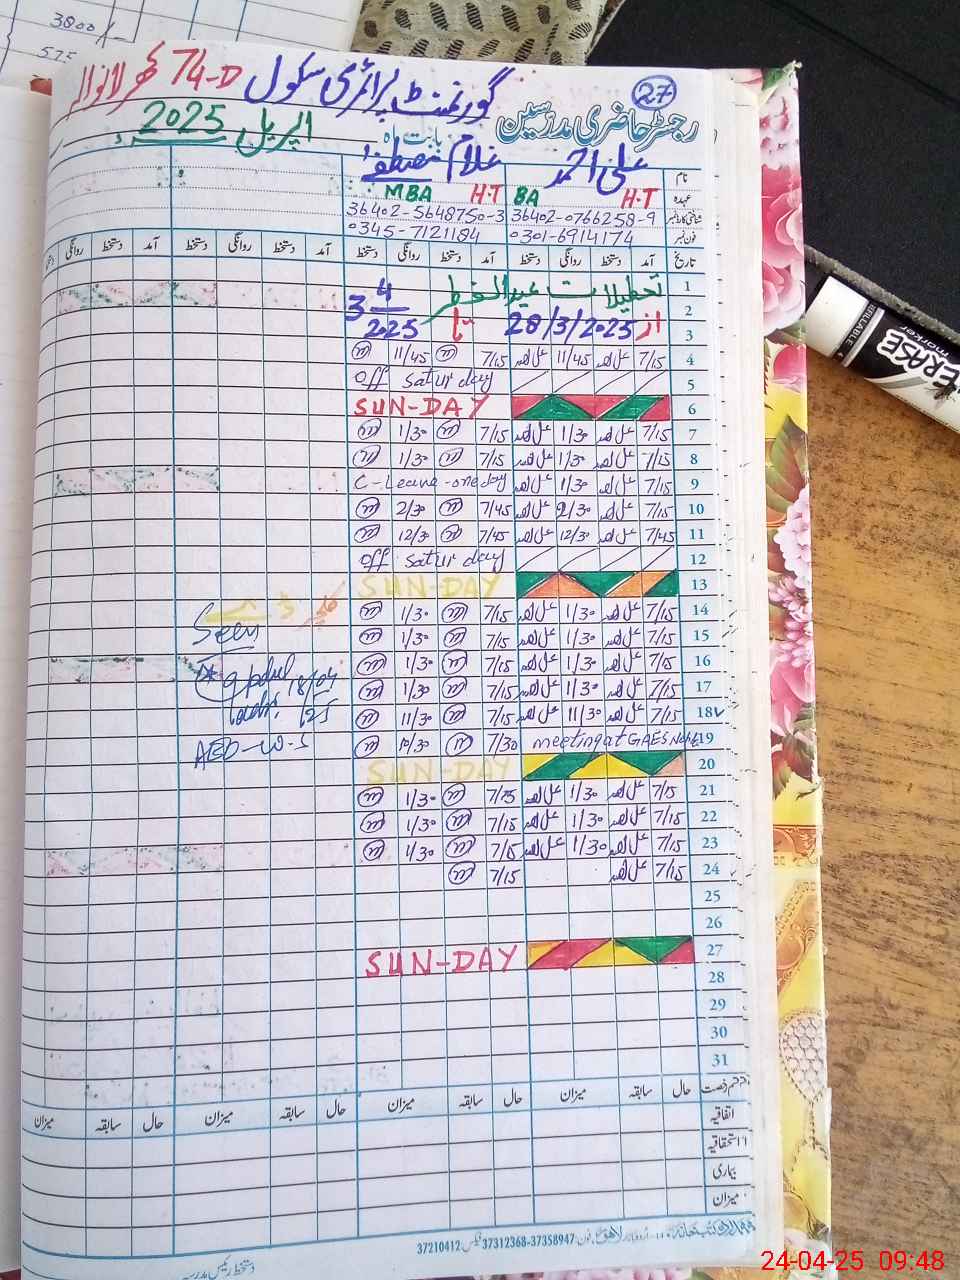 3800/-
575
گورنمنٹ پرائمری سکول 74-D
27
رجسٹر حاضری مدرسین
بابت ماہ
اپریل 2025ء
نام علی احمد غلام مصطفےٰ
عہدہ H.T BA H.T MBA
شناختی کارڈ نمبر 36402-0766258-9 36402-5648750-3
فون نمبر 0301-6914174 0345-7121184
تاریخ آمد دستخط روانگی دستخط آمد دستخط روانگی دستخط آمد دستخط روانگی دستخط آمد دستخط روانگی
1 تعطیلات عید الفطر
2
3 از 28/3/2025 تا 3 4/2025
4 7/15 علی احمد 11/45 علی احمد 7/15 m 11/45 m
5 Off Saturday
6 SUN-DAY
7 7/15 علی احمد 1/30 علی احمد 7/15 m 1/30 m
8 7/15 علی احمد 1/30 علی احمد 7/15 m 1/30 m
9 7/15 علی احمد 1/30 علی احمد C-Leave-one day
10 7/15 علی احمد 2/30 علی احمد 7/45 m 2/30 m
11 7/45 علی احمد 12/30 علی احمد 7/45 m 12/30 m
12 Off Saturday
13 SUN-DAY
14 7/15 علی احمد 1/30 علی احمد 7/15 m 1/30 m
15 7/15 علی احمد 1/30 علی احمد 7/15 m 1/30 m
16 7/15 علی احمد 1/30 علی احمد 7/15 m 1/30 m
17 7/15 علی احمد 1/30 علی احمد 7/15 m 1/30 m
18 7/15 علی احمد 11/30 علی احمد 7/15 m 11/30 m
19 meeting at 7/30 m 10/30 m
20 SUN-DAY
21 7/15 علی احمد 1/30 علی احمد 7/15 m 1/30 m
22 7/15 علی احمد 1/30 علی احمد 7/15 m 1/30 m
23 7/15 علی احمد 1/30 علی احمد 7/15 m 1/30 m
24 7/15 علی احمد 7/15 m
25
26
27 SUN-DAY
28
29
30
31
Seen
18/04
25
AEO-W-S
قسم رخصت حال سابقہ میزان حال سابقہ میزان حال سابقہ میزان حال سابقہ میزان
اتفاقیہ
استحقاقیہ
بیماری
میزان
لاہور فون: 37358947-37312368 فیکس: 37210412
دستخط رئیس مدرسہ
ERASE
marker
REFILLABLE
24-04-25 09:48